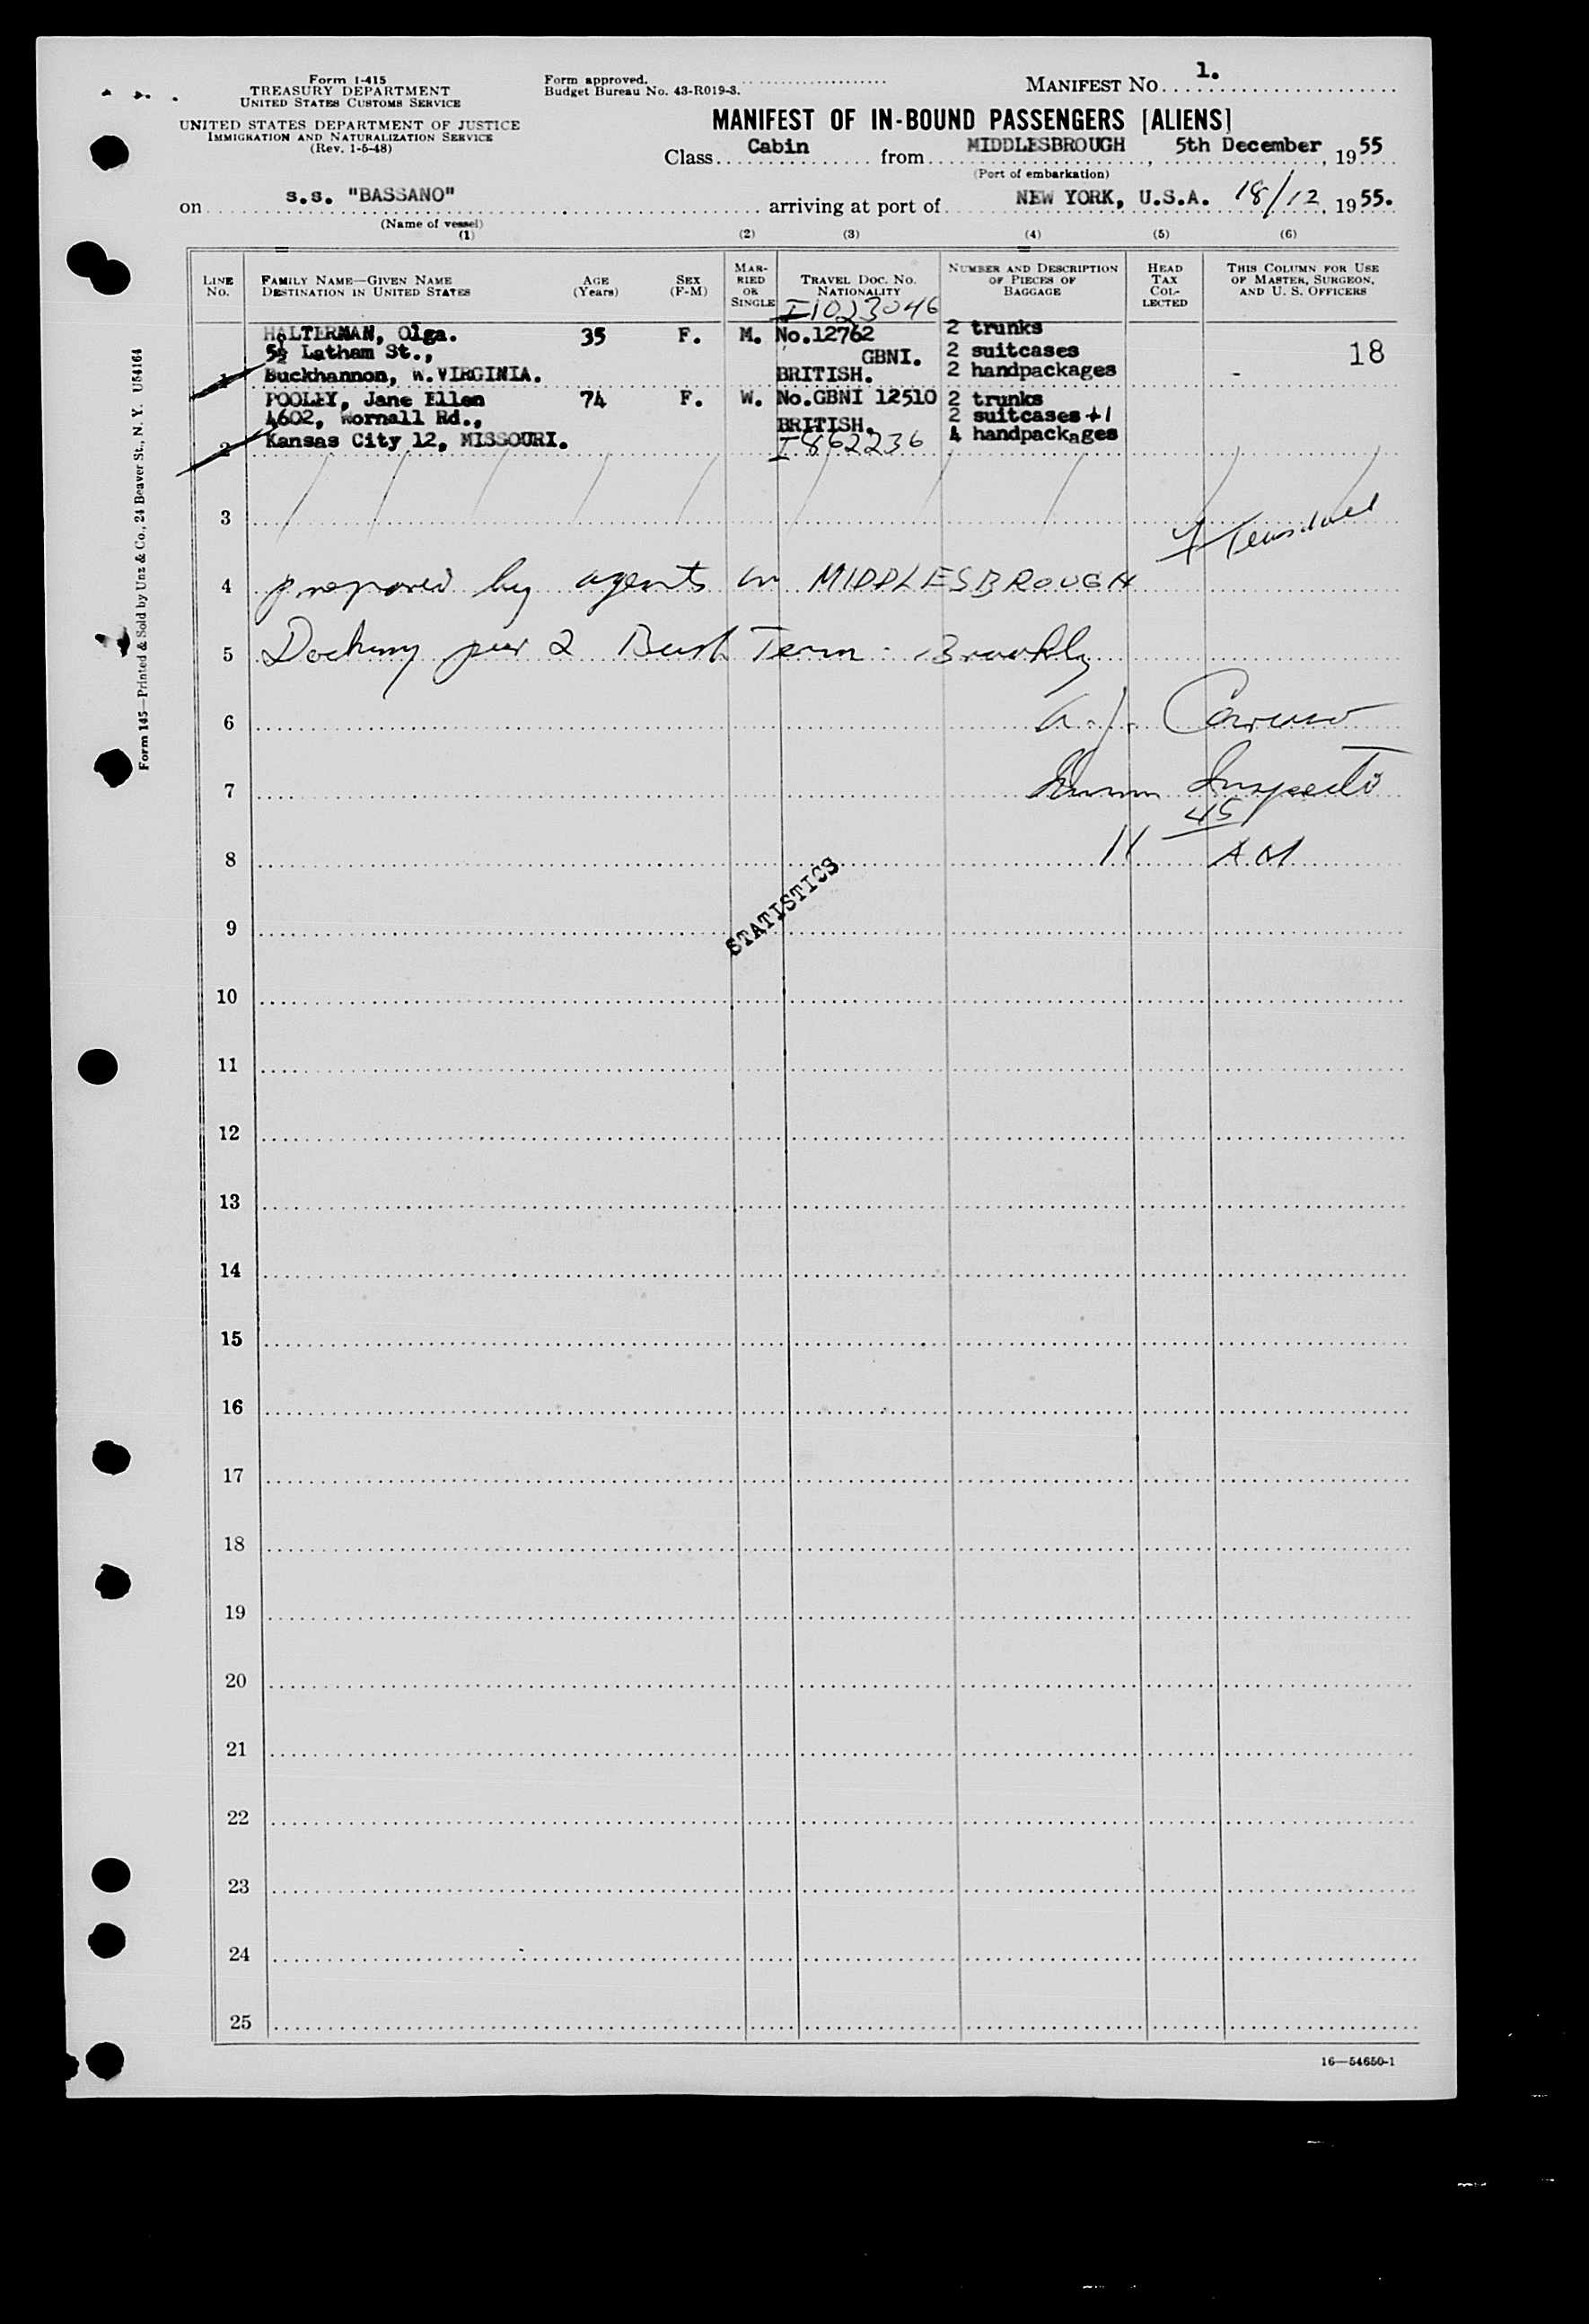 Form I-415
TREASURY DEPARTMENT
UNITED STATES CUSTOMS SERVICE
UNITED STATES DEPARTMENT OF JUSTICE
IMMIGRATION AND NATURALIZATION SERVICE
(Rev. 1-5-48)
Form approved.
Budget Bureau No. 43-R019-3.
MANIFEST No. 1.
MANIFEST OF IN-BOUND PASSENGERS [ALIENS]
Class Cabin from MIDDLESBROUGH, 5th December, 1955
(Port of embarkation)
on s.s. "BASSANO" arriving at port of NEW YORK, U.S.A. 18/12, 1955.
(Name of vessel)
(1) (2) (3) (4) (5) (6)
LINE No. FAMILY NAME—GIVEN NAME DESTINATION IN UNITED STATES AGE (Years) SEX (F-M) MARRIED OR SINGLE TRAVEL DOC. No. NATIONALITY NUMBER AND DESCRIPTION OF PIECES OF BAGGAGE HEAD TAX COLLECTED THIS COLUMN FOR USE OF MASTER, SURGEON, AND U. S. OFFICERS
I1023046
HALTERMAN, Olga. 35 F. M. No.12762 2 trunks
5½ Latham St., GBNI. 2 suitcases 18
1 Buckhannon, W.VIRGINIA. BRITISH. 2 handpackages -
POOLEY, Jane Ellen 74 F. W. No.GBNI 12510 2 trunks
4602, Wornall Rd., BRITISH. 2 suitcases +1
2 Kansas City 12, MISSOURI. I862236 4 handpackages
3
4 prepared by agents in MIDDLESBROUGH
5 Docking pier 2 Bush Term. Brooklyn
6 A. J. Caruso
7 Immn Inspector
8 11 45 AM
STATISTICS
9
10
11
12
13
14
15
16
17
18
19
20
21
22
23
24
25
16—54650-1
Form 145—Printed & Sold by Unz & Co., 24 Beaver St., N. Y. U54164